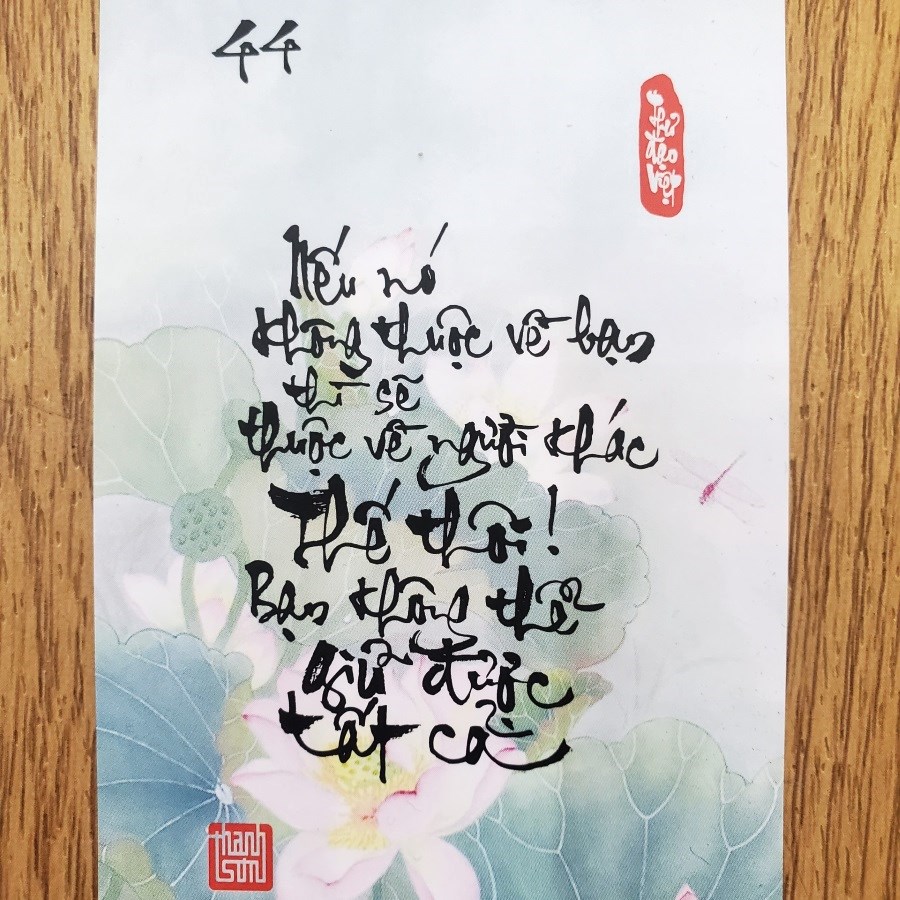 44
thư
đạo
Việt
Nếu nó
không thuộc về bạn
thì sẽ
thuộc về người khác
Thế thôi!
Bạn không thể
giữ được
tất cả
thanh
sơn